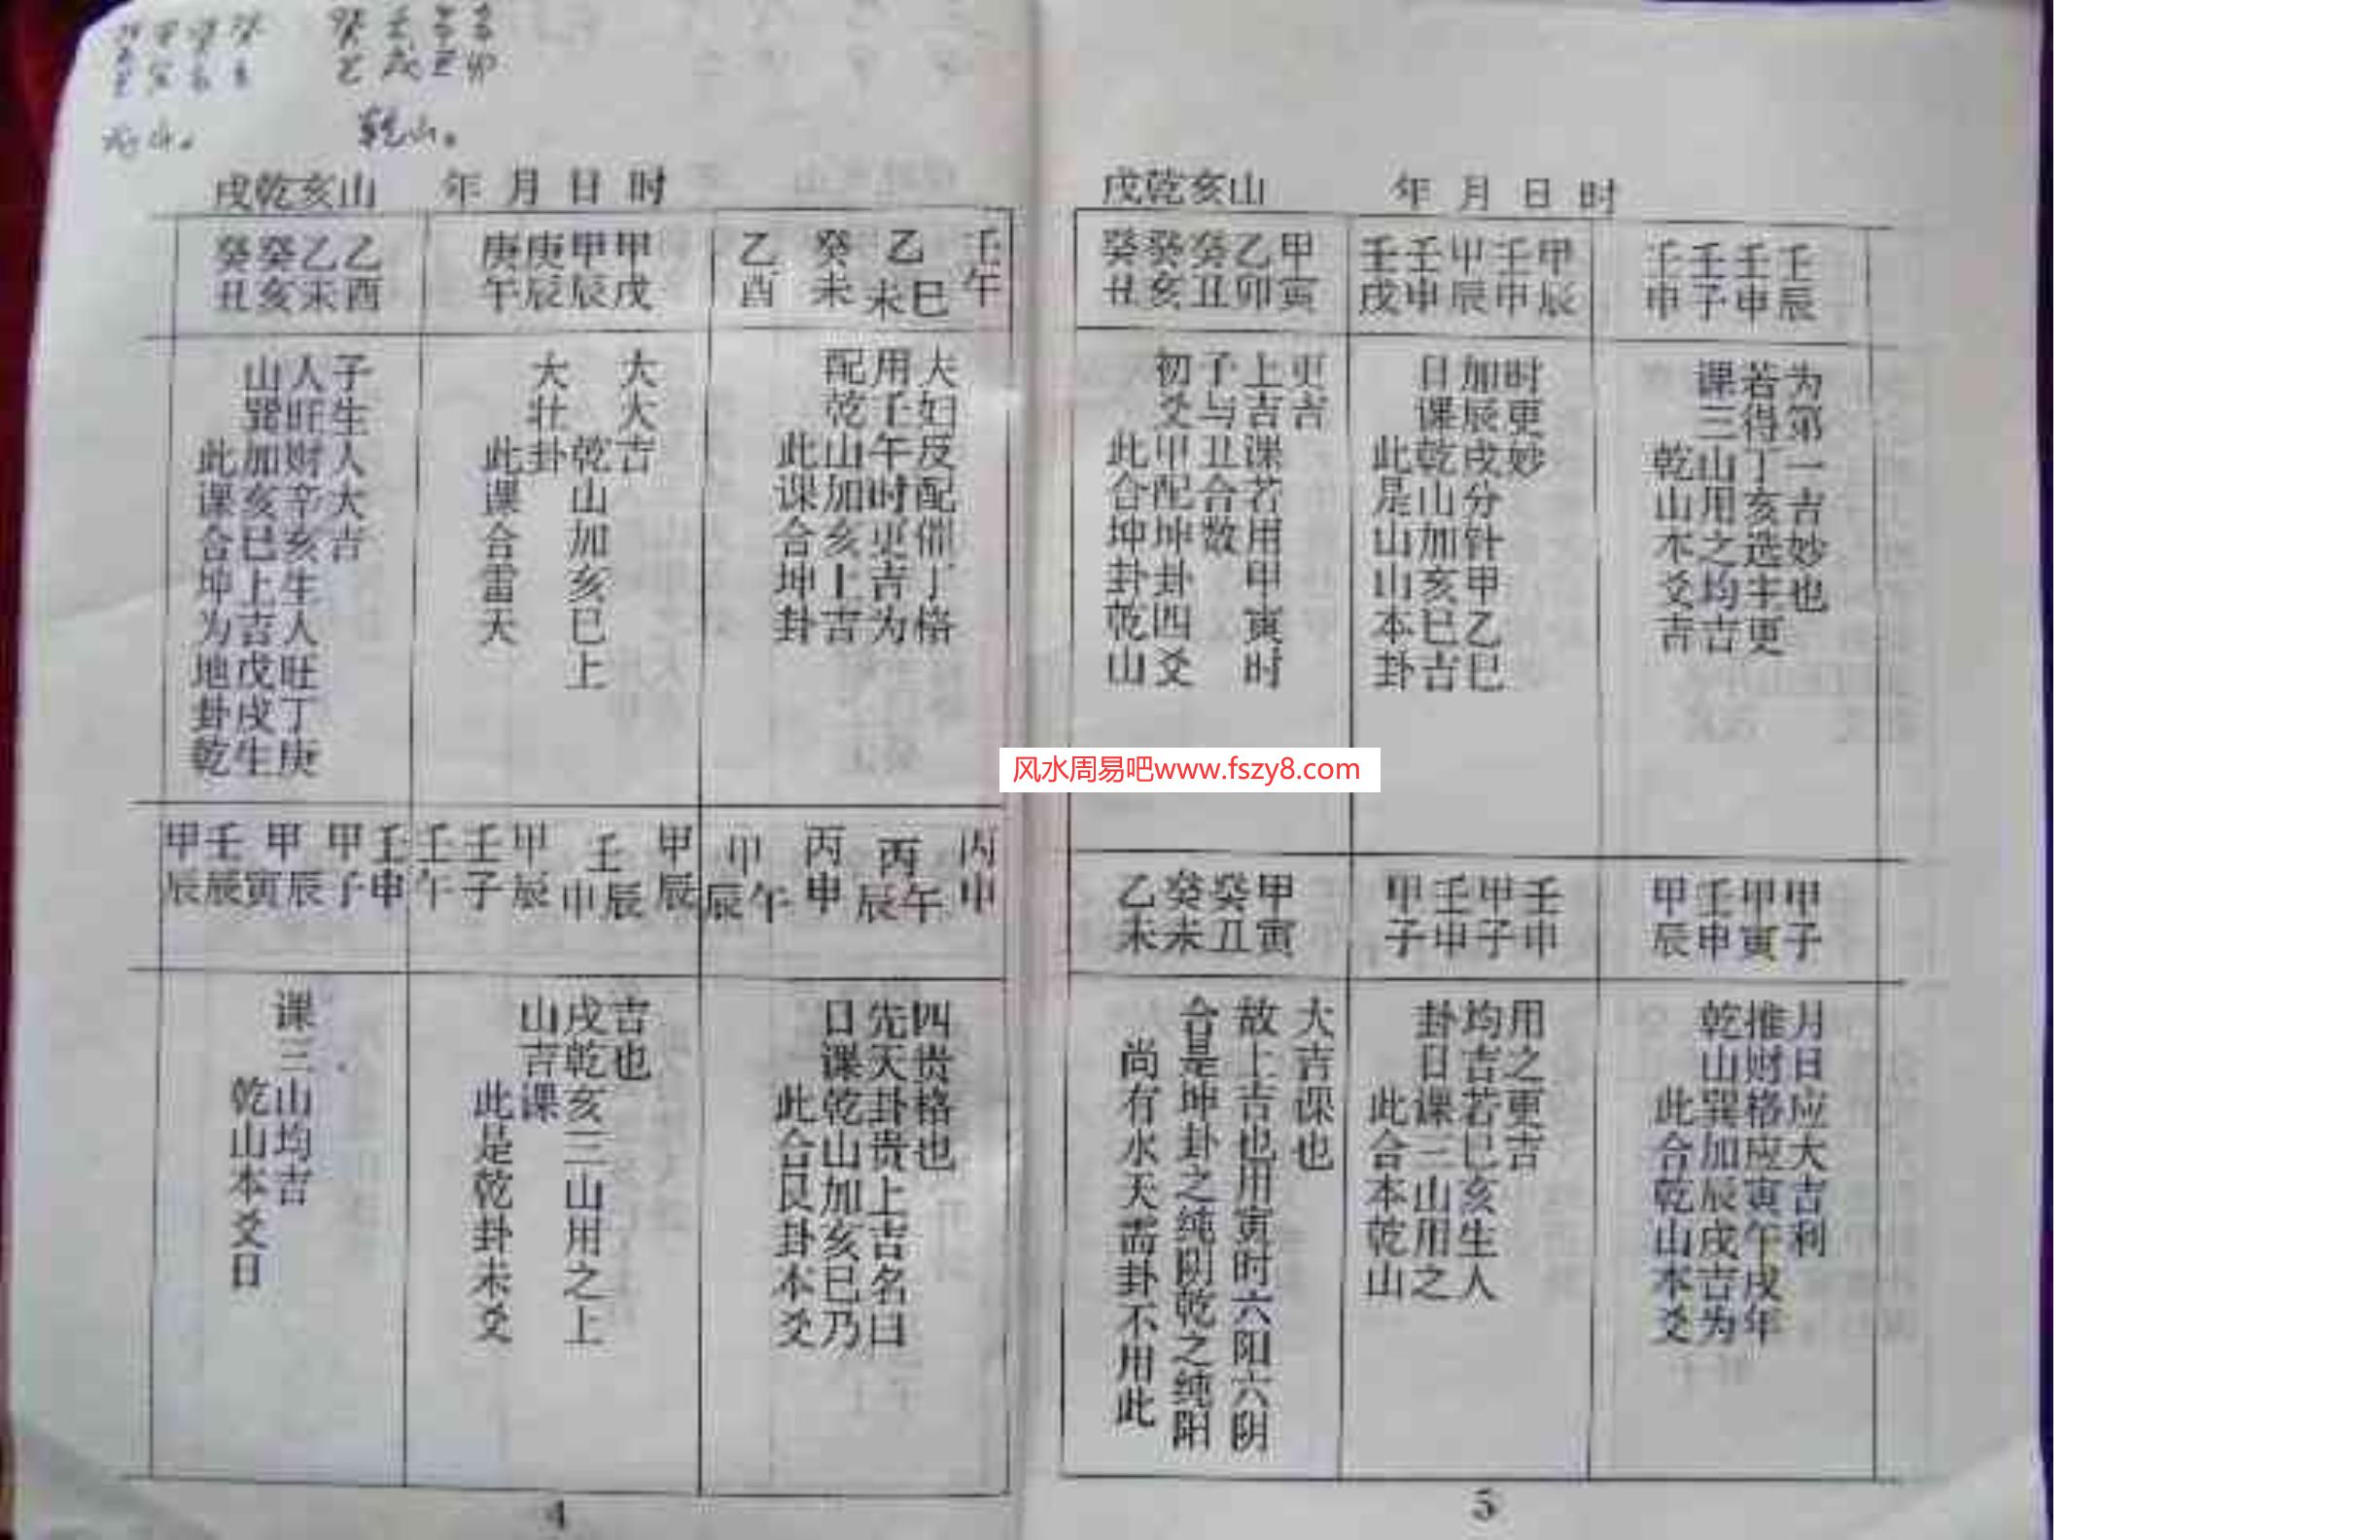 乾山。
戌乾亥山 年月日时
癸癸乙乙
丑亥未酉
此课合坤为地卦乾
山巽加亥巳上吉戊戌生
人旺财辛亥生人旺丁庚
子生人大吉
庚庚甲甲
午辰辰戌
此课合雷天
大壮卦
乾山加亥巳上
大大吉
乙癸乙壬
酉未未巳午
此课合坤卦
配乾山加亥上吉
用壬午时更吉为
夫妇反配催丁格
甲壬甲甲壬
辰辰寅辰子申
乾山本爻日
课三山均吉
壬壬甲壬甲
午子辰申辰辰
此是乾卦本爻
山吉课
戌乾亥三山用之上
吉也
甲丙丙丙
辰午申辰午申
此合艮卦本爻
日课乾山加亥巳乃
先天卦贵上吉名曰
四贵格也
4
戌乾亥山 年月日时
癸癸癸乙甲
丑亥丑卯寅
此合坤卦乾山
初爻甲配坤卦四爻
子与丑合数
上吉课若用甲寅时
更吉
壬壬甲壬甲
戌申辰申辰
此是山本卦
日课乾山加亥巳吉
加辰戌分针甲乙巳
时更妙
壬壬壬壬
申子申辰
乾山本爻吉
课三山用之均吉
若得丁亥选主更
为第一吉妙也
乙癸癸甲
未未丑寅
尚有水天需卦不用此
合是坤卦之纯阴乾之纯阳
故上吉也用寅时六阳六阴
大吉课也
甲壬甲壬
子申子申
此合本乾山
卦日课三山用之
均吉若巳亥生人
用之更吉
甲壬甲甲
辰申寅子
此合乾山本爻
乾山巽加辰戌吉为
推财格应寅午戌年
月日应大吉利
5
风水周易吧www.fszy8.com